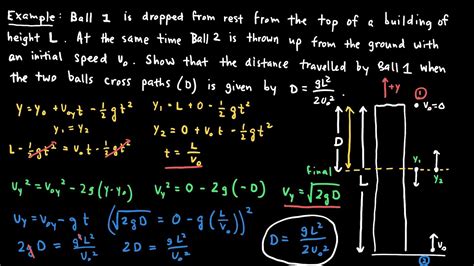 Example: Ball 1 is dropped from rest from the top of a building of
height L. At the same time Ball 2 is thrown up from the ground with
an initial speed v₀. Show that the distance travelled by Ball 1 when
the two balls cross paths (D) is given by D = gL²/2v₀².
y = y₀ + v₀yt - ½gt²
y₁ = L + 0 - ½gt²
y₁ = y₂
y₂ = 0 + v₀t - ½gt²
L - ½gt² = v₀t - ½gt²
t = L/v₀
vy² = v₀y² - 2g(y-y₀)
vy² = 0 - 2g(-D)
Final
vy = √2gD
vy = v₀y - gt
(√2gD = 0 - g(L/v₀))²
2gD = g²L²/v₀²
2D = gL²/v₀²
D = gL²/2v₀²
+y
1
v₀=0
D
L
y₁
y₂
v₀
2